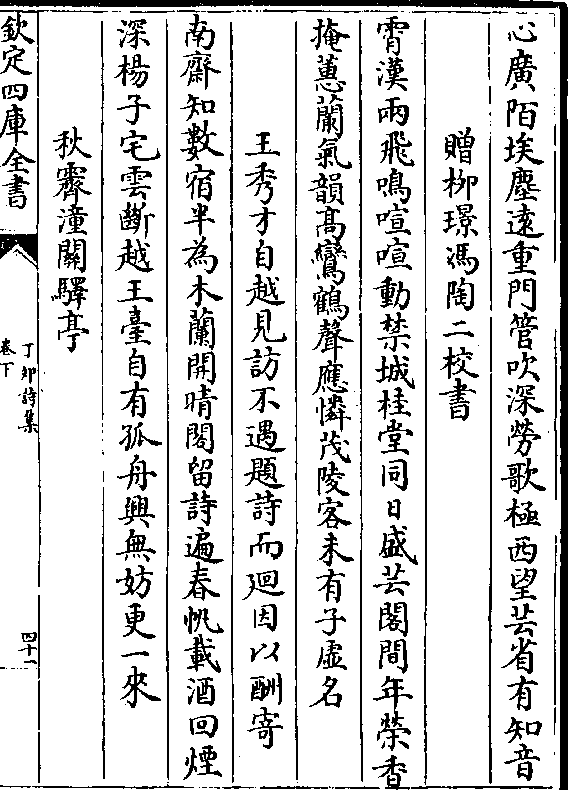 心廣陌埃塵遠重門管吹深勞歌極西望芸省有知音
贈栁璟馮陶二校書
霄漢兩飛鳴喧喧動禁城桂堂同日盛芸閣間年榮香
掩蕙蘭氣韻髙鸞鶴聲應憐茂陵客未有子虛名
王秀才自越見訪不遇題詩而廻因以酬寄
南齋知數宿半為木蘭開晴閣留詩遍春帆載酒回煙
深楊子宅雲斷越王臺自有孤舟興無妨更一來
秋霽潼關驛亭
欽定四庫全書
丁卯詩集
卷下
四十一